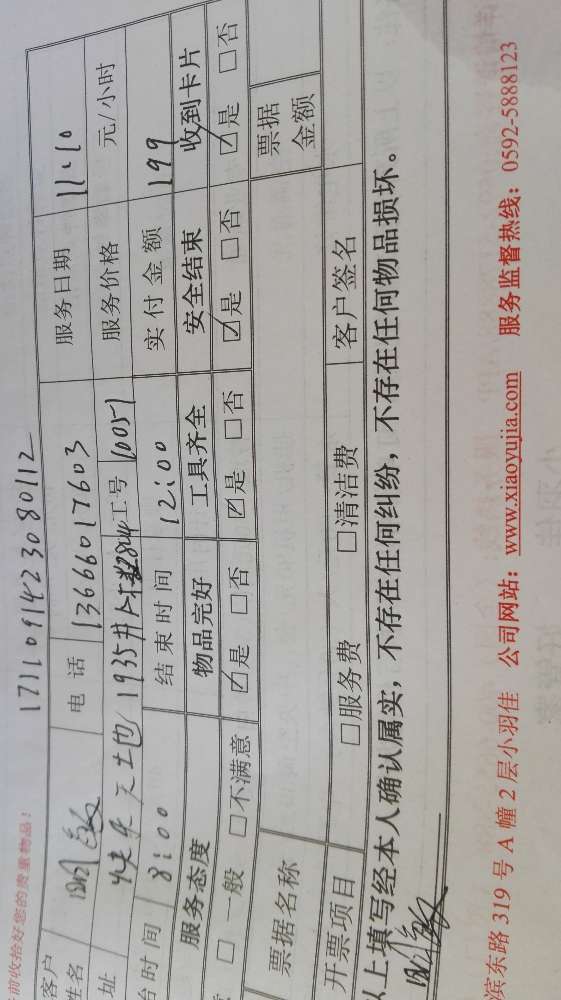 1711091423080112
前收拾好您的贵重物品！
客户
姓名 敏 电 话 13666017603 服务日期 11.10
址 快乐天地 1935 工号 10051 服务价格 元/小时
台时间 8:00 结束时间 12:00 实付金额 199
服务态度 物品完好 工具齐全 安全结束 收到卡片
□一般 □不满意 ☑是 □否 ☑是 □否 ☑是 □否 ☑是 □否
票据名称 票据金额
开票项目 □服务费 □清洁费 客户签名
以上填写经本人确认属实，不存在任何纠纷，不存在任何物品损坏。
敏
宾东路 319 号 A 幢 2 层小羽佳 公司网站：www.xiaoyujia.com 服务监督热线：0592-5888123